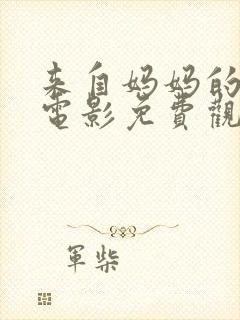 来自妈妈的
電影免費觀
軍柴